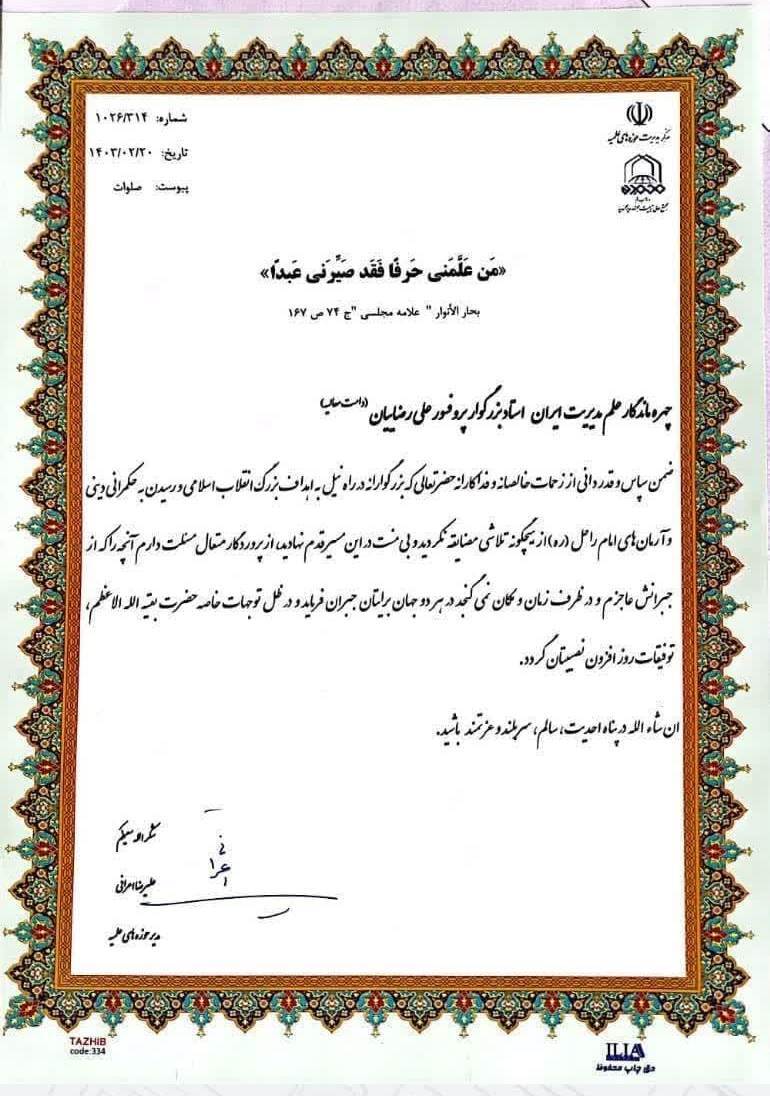 شماره: ۱۰۲۶/۳۱۴
تاریخ: ۱۴۰۳/۰۲/۲۰
پیوست: صلوات
مرکز مدیریت حوزه‌های علمیه
«مَن عَلَّمَنی حَرفًا فَقَد صَیَّرَنی عَبدًا»
بحار الأنوار " علامه مجلسی "ج ۷۴ ص ۱۶۷
چهره ماندگار علم مدیریت ایران استاد بزرگوار پروفسور علی رضاییان
ضمن سپاس و قدردانی از زحمات خالصانه و فداکارانه حضرتعالی که بزرگوارانه در راه نیل به اهداف بزرگ انقلاب اسلامی و رسیدن به حکمرانی دینی
و آرمان‌های امام راحل (ره) از هیچگونه تلاشی مضایقه نکردید و بی منت در این مسیر قدم نهادید، از پروردگار متعال مسئلت دارم آنچه را که از
جبرانش عاجزم و در ظرف زمان و مکان نمی گنجد در هر دو جهان برایتان جبران فرماید و در ظل توجهات خاصه حضرت بقیه الله الاعظم،
توفیقات روز افزون نصیبتان گردد.
ان شاء الله در پناه احدیت، سالم، سربلند و عزتمند باشید.
علیرضا اعرافی
مدیر حوزه‌های علمیه
TAZHIB
code:334
ILIA
حق چاپ محفوظ